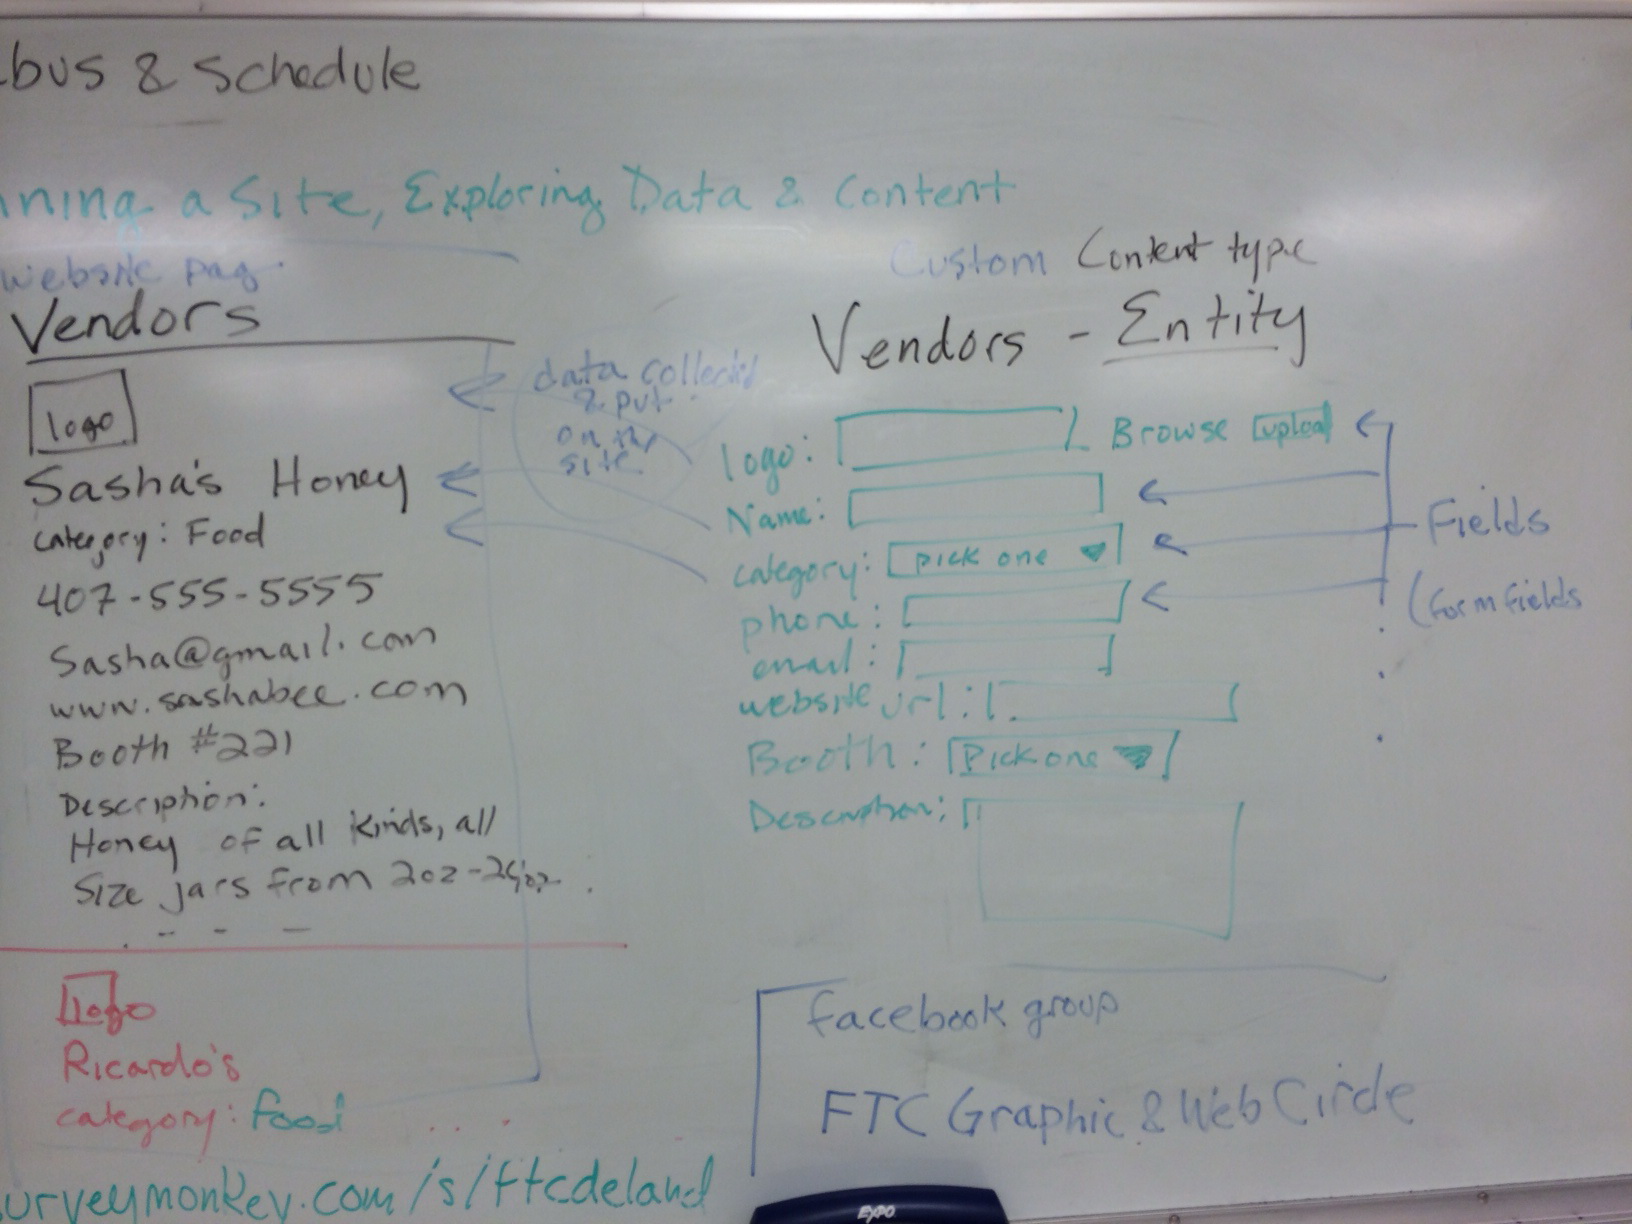 bus & Schedule
nning a Site, Exploring Data & Content
website pag
Vendors
logo
Sasha's Honey
category: Food
407-555-5555
Sasha@gmail.com
www.sashabee.com
Booth #221
Description:
Honey of all kinds, all
Size jars from 2oz-
logo
Ricardo's
category: food
....
urveymonkey.com/s/ftcdeland
data collected
& put
on the
site
Custom Content type
Vendors - Entity
logo: Browse upload
Name:
category: pick one
phone:
email:
website url:
Booth: Pick one
Description:
Fields
(form fields
facebook group
FTC Graphic & Web Circle
EXPO